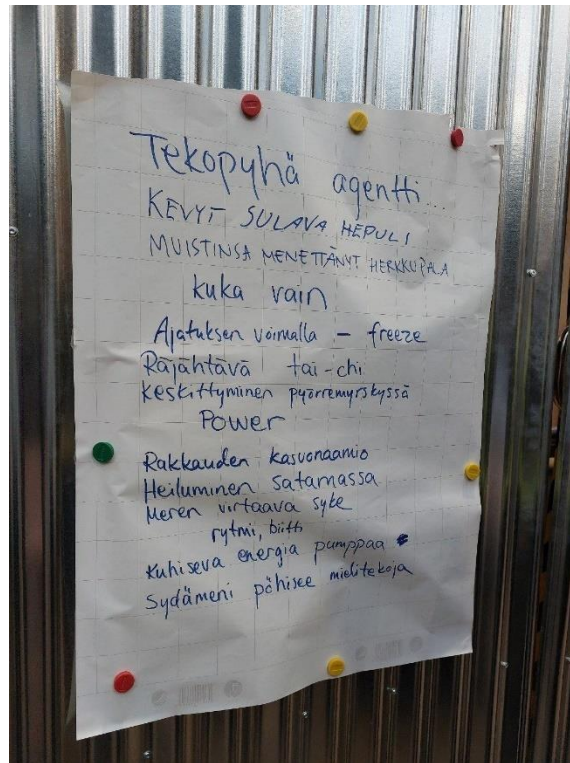 Tekopyhä agentti...
KEVYT SULAVA HEPULI
MUISTINSA MENETTÄNYT HERKKUPALA
kuka vain
Ajatuksen voimalla – freeze
Räjähtävä tai-chi
keskittyminen pyörremyrskyssä
Power
Rakkauden kasvonaamio
Heiluminen satamassa
Meren virtaava syke
rytmi, biitti
Kuhiseva energia pumppaa
Sydämeni pöhisee mielitekoja